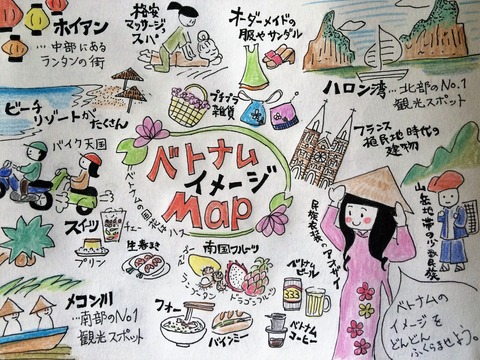 ホイアン
…中部にある
ランタンの街
格安
マッサージ&
スパ
オーダーメイドの
服やサンダル
ハロン湾
…北部のNo.1
観光スポット
ビーチ
リゾートが
たくさん
プチプラ
雑貨
フランス
植民地時代の
建物
バイク天国
ベトナム
イメージ
Map
ベトナムの国花はハス
民族衣装のアオザイ
山岳地帯の少数民族
スイーツ
チェー
プリン
生春まき
南国フルーツ
マンゴー
ランブータン
ドラゴンフルーツ
ベトナム
ビール
メコン川
…南部のNo.1
観光スポット
フォー
バインミー
ベトナム
コーヒー
ベトナムの
イメージを
どんどん
ふくらませましょう。